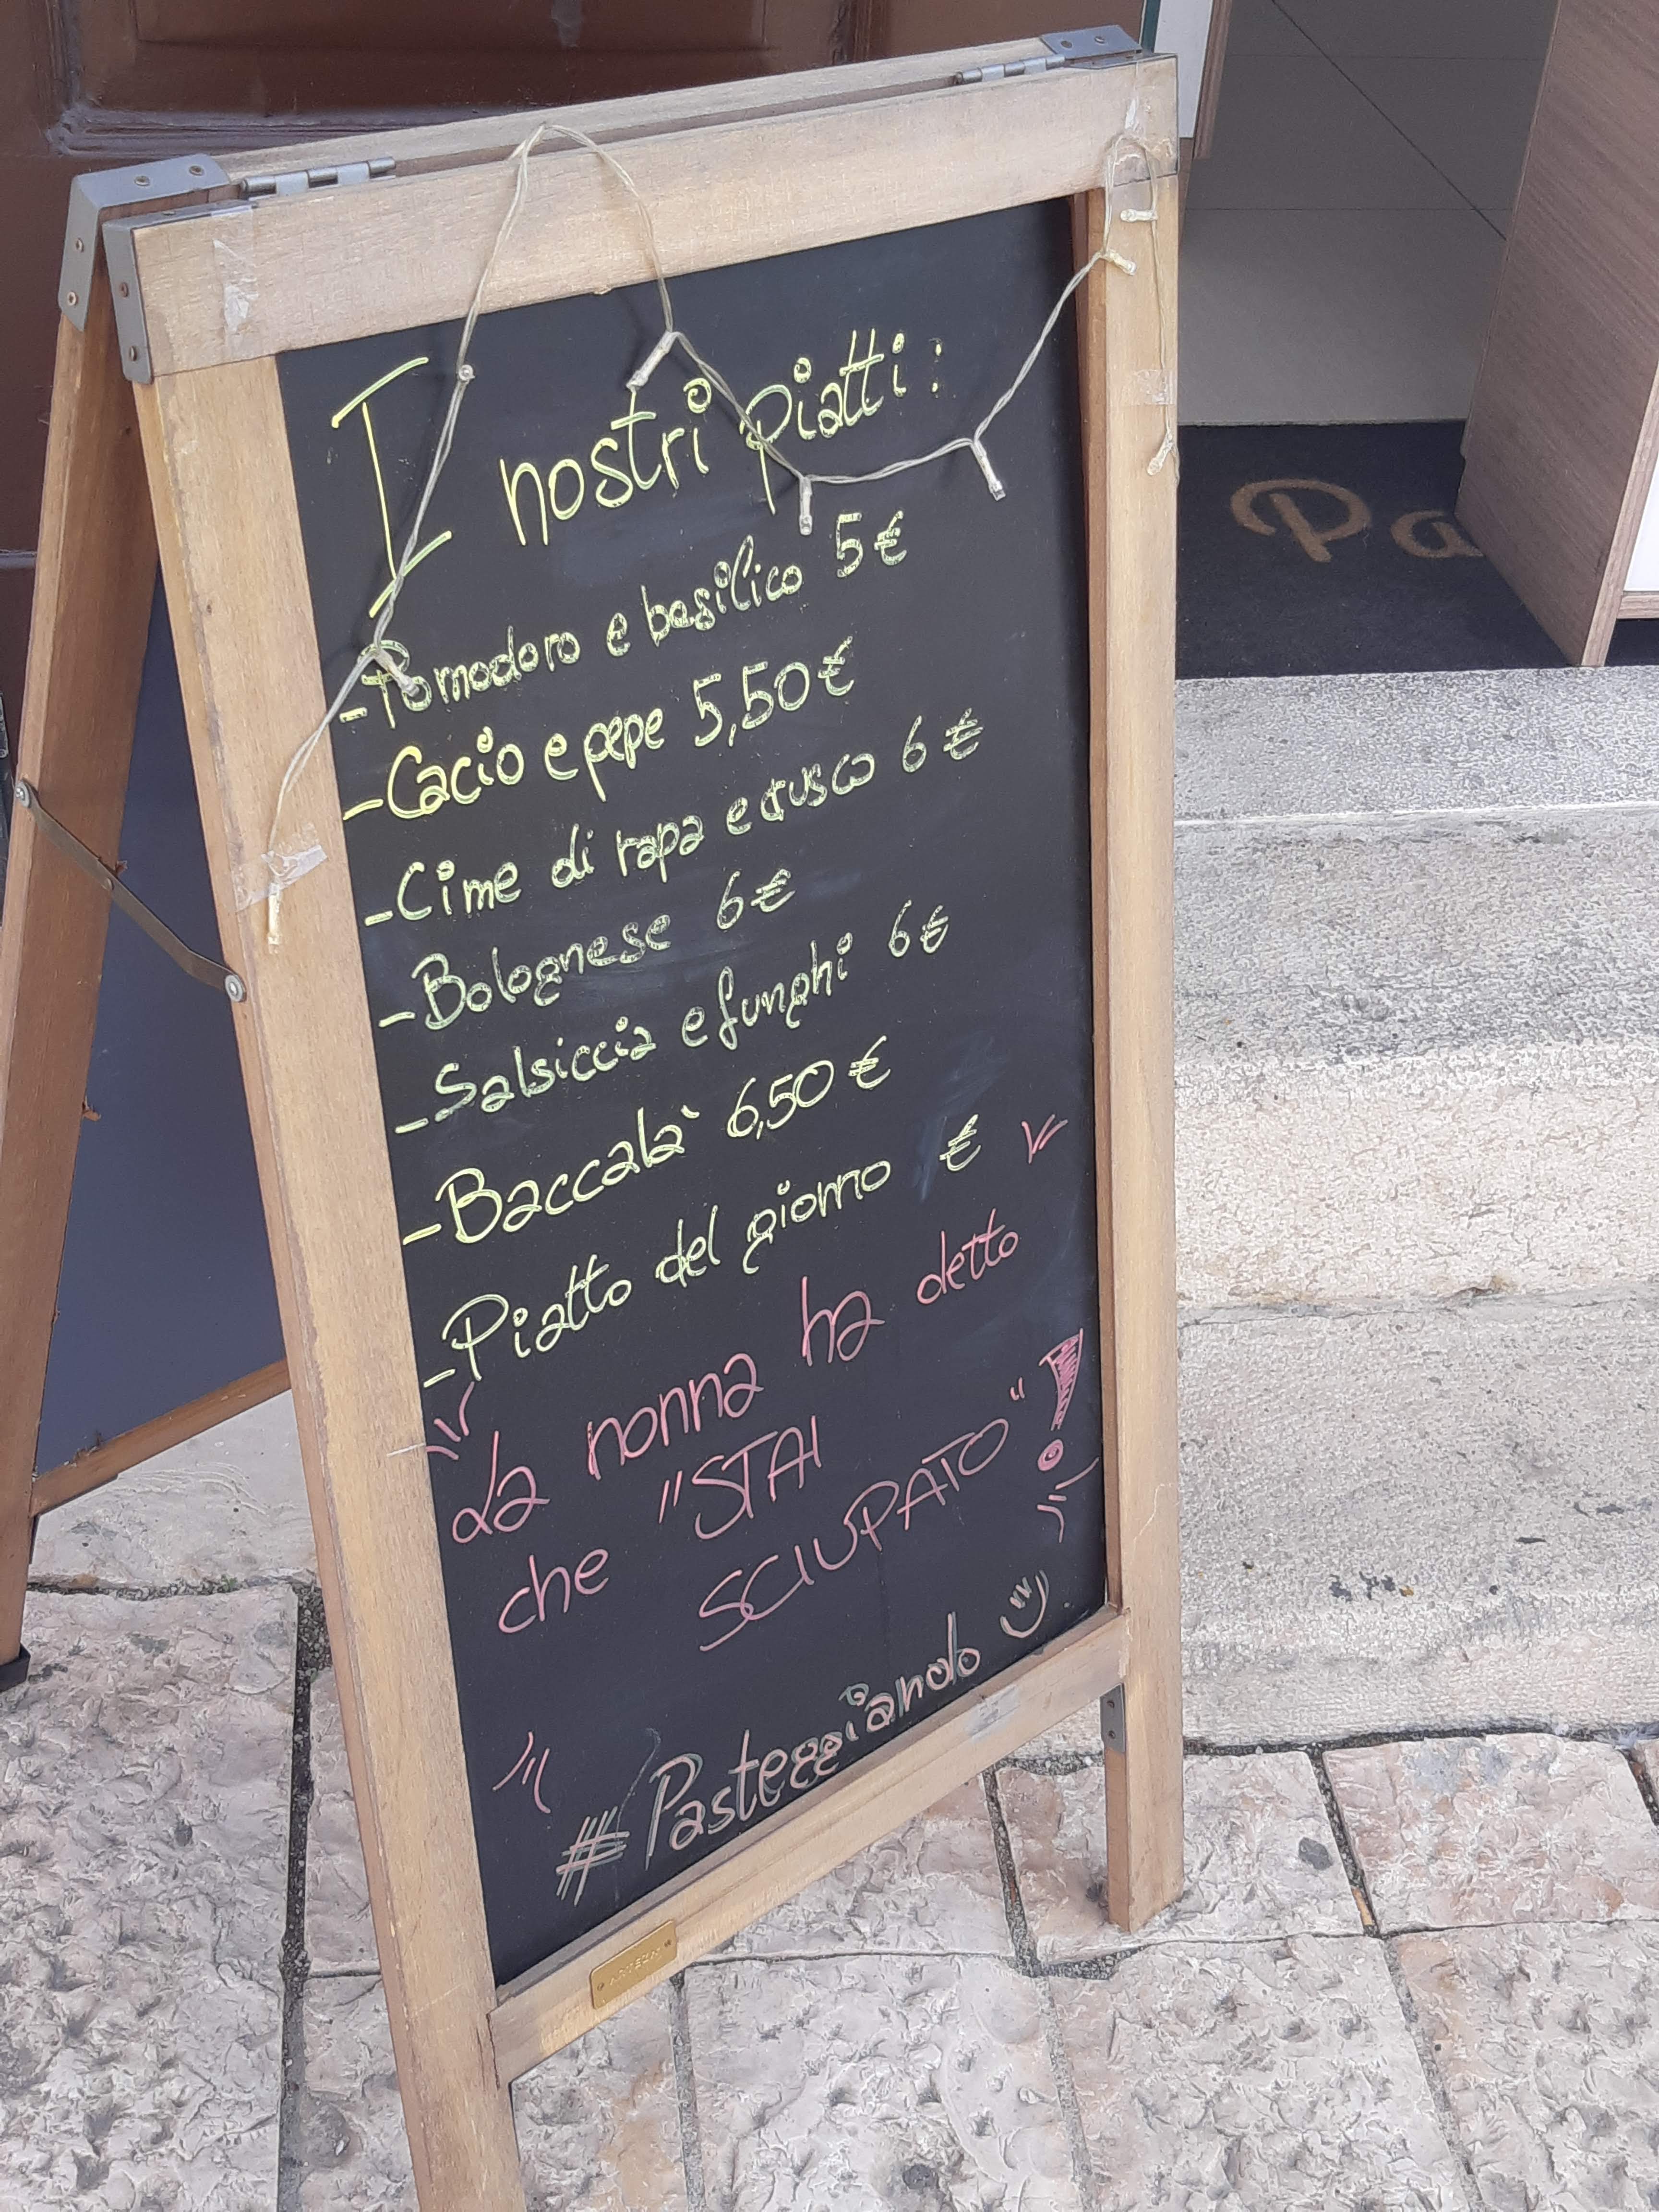 I nostri piatti:
- Pomodoro e basilico 5€
- Cacio e pepe 5,50€
- Cime di rapa e crusco 6€
- Bolognese 6€
- Salsiccia e funghi 6€
- Baccala` 6,50€
- Piatto del giorno €
La nonna ha detto
che "STAI
SCIUPATO"!
#Pasteggiando
Pa